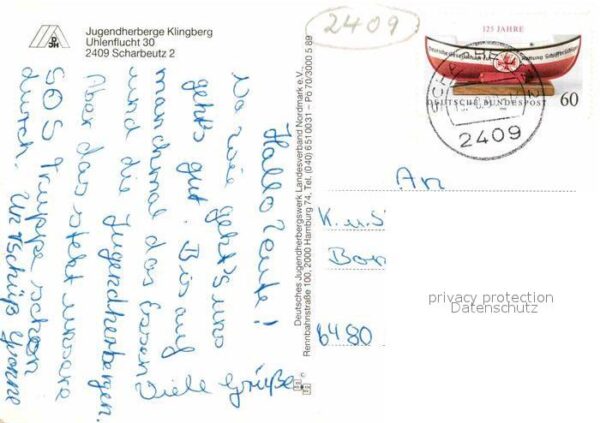 Jugendherberge Klingberg
Uhlenflucht 30
2409 Scharbeutz 2
2409
125 JAHRE
Deutsche Gesellschaft zur Rettung Schiffbrüchiger
DEUTSCHE BUNDESPOST
60
2409
Hallo Leute!
Na wie geht's uns
geht's gut. Bis auf
manchmal das Essen
und die Jugendherbergen.
Aber das steht unsere
SOS Truppe schon
durch.
Tschüß Yvonne
Viele Grüße
Deutsches Jugendherbergswerk Landesverband Nordmark e.V.
Rennbahnstraße 100, 2000 Hamburg 74, Tel. (040) 6510031 – Pö 70/3000 5 89
An
K. u. S
Bon
6480
privacy protection
Datenschutz